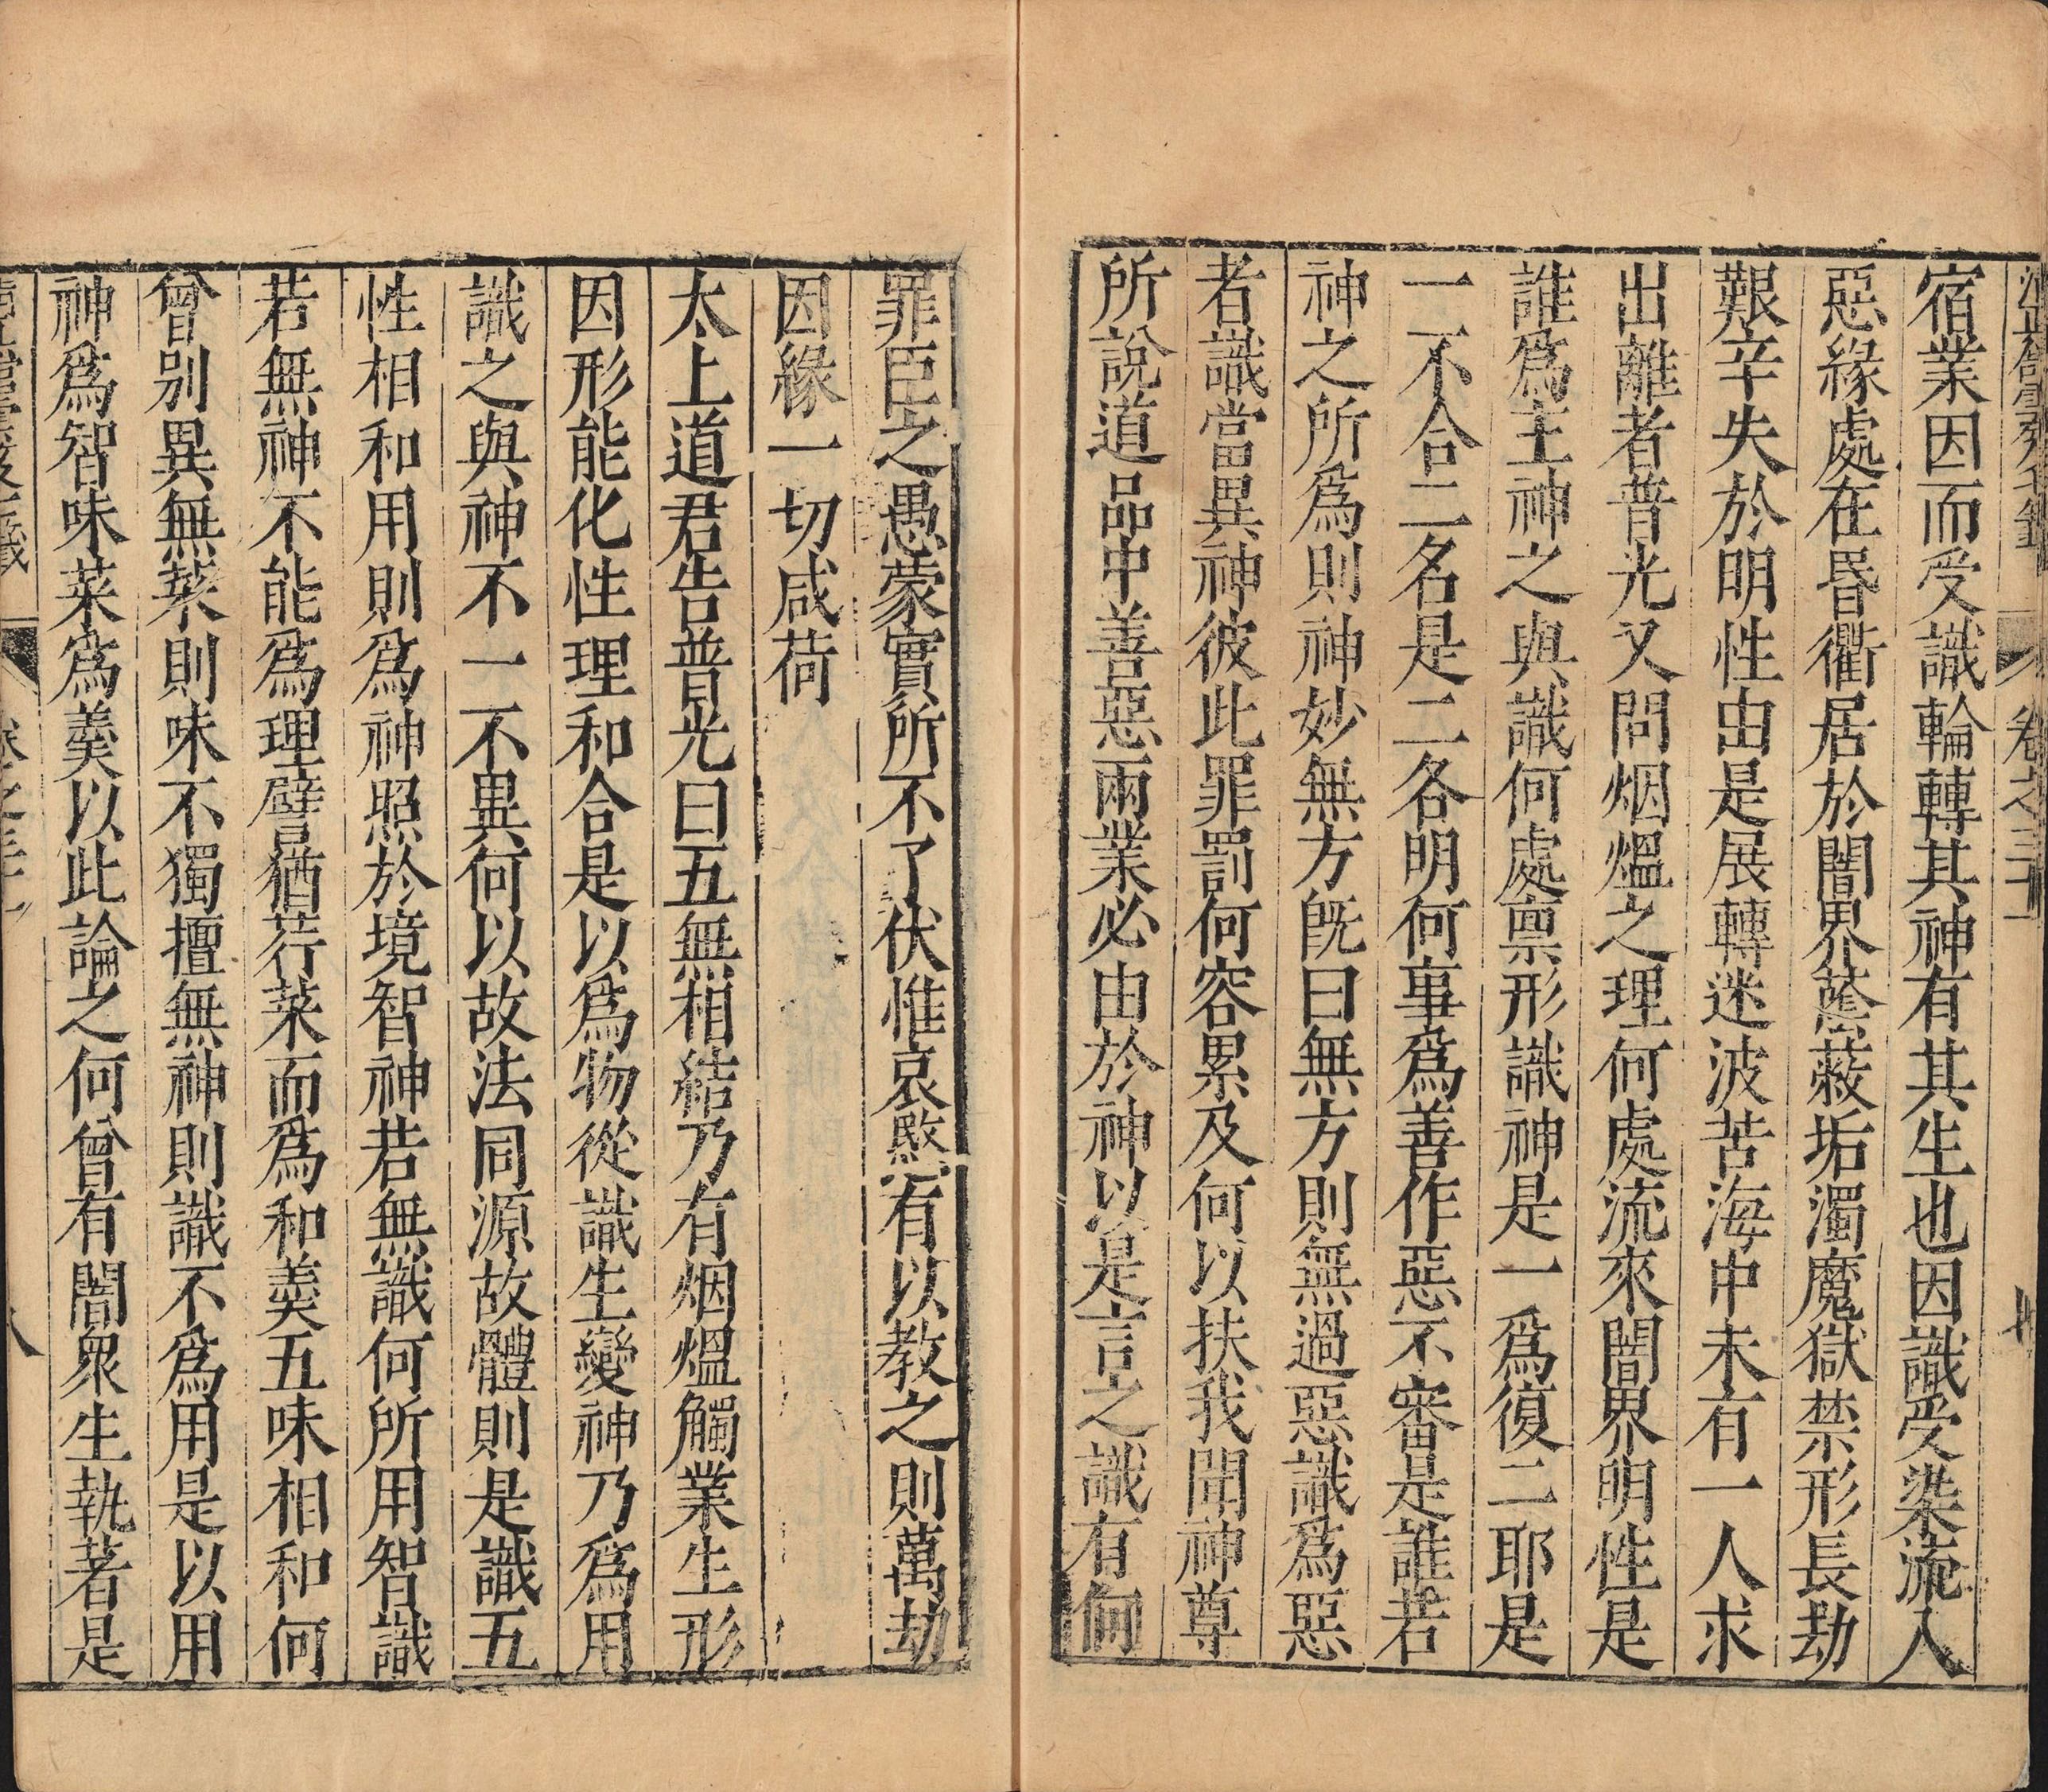 卷之三十一
宿業因而受識輪轉其神有其生也因識受染流入
惡緣處在昏衢居於闇界蔭蔽垢濁魔獄禁形長劫
艱辛失於明性由是展轉迷波苦海中未有一人求
出離者普光又問烟熅之理何處流來闇界明性是
誰爲主神之與識何處禀形識神是一爲復二耶是
一不合二名是二各明何事爲善作惡不審是誰若
神之所爲則神妙無方旣曰無方則無過惡識爲惡
者識當異神彼此罪罰何容累及何以扶我聞神尊
所說道品中善惡兩業必由於神以是言之識有何
罪臣之愚蒙實所不了伏惟哀愍有以教之則萬劫
因緣一切咸荷
太上道君告普光曰五無相結乃有烟熅觸業生形
因形能化性理和合是以爲物從識生變神乃爲用
識之與神不一不異何以故法同源故體則是識五
性相和用則爲神照於境智神若無識何所用智識
若無神不能爲理譬猶荇菜而爲和羹五味相和何
曾別異無菜則味不獨擅無神則識不爲用是以用
神爲智味菜爲羹以此論之何曾有闇衆生執著是
八